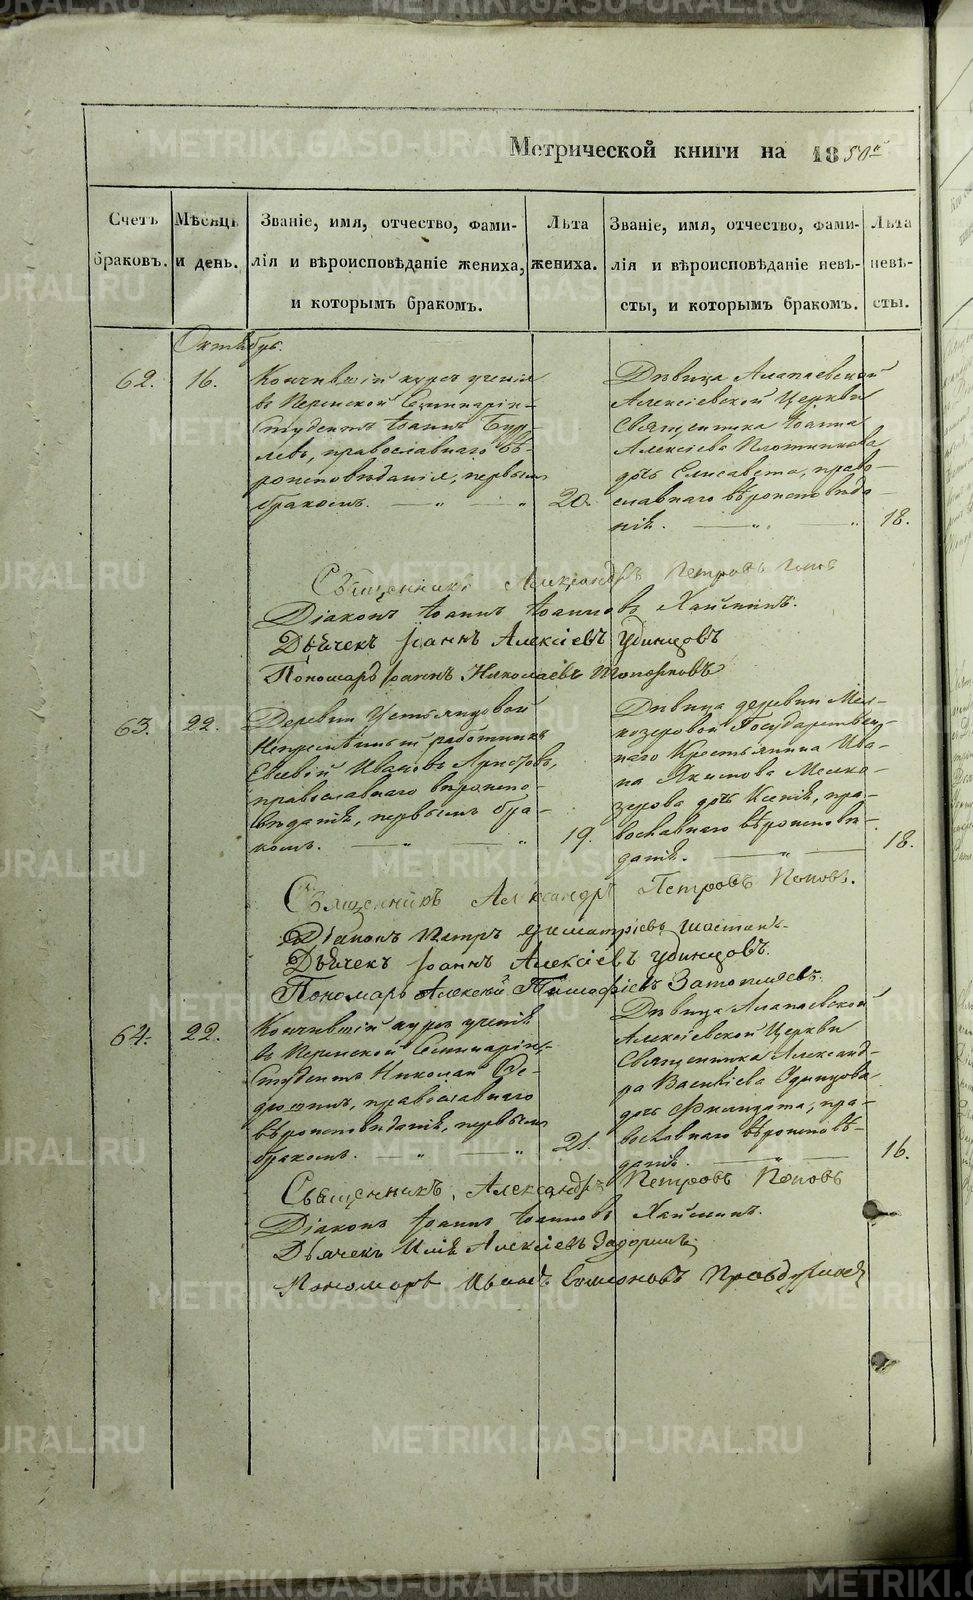 Метрической книги на 1850й
Счетъ браковъ.
Мѣсяцъ и день.
Званіе, имя, отчество, фами-
лія и вѣроисповѣданіе жениха,
и которымъ бракомъ.
Лѣта жениха.
Званіе, имя, отчество, фами-
лія и вѣроисповѣданіе невѣ-
сты, и которымъ бракомъ.
Лѣта невѣ-
сты.
Октябрь.
62.
16.
Кончившій курсъ ученія
въ Пермской Семинаріи
Студентъ Іоаннъ
православнаго вѣ-
роисповѣданія, первымъ
бракомъ.
20.
Дѣвица Алапаевской
Алексіевской Церкви
Священника Іоанна
Алексіева Плотникова
дочь Елисавета, право-
славнаго вѣроисповѣда-
нія.
18.
Священникъ Александръ Петровъ Поповъ
Діаконъ Іоаннъ Іоанновъ Хайминъ.
Дьячекъ Іоаннъ Алексіевъ Удинцовъ
Пономарь Іоаннъ Николаевъ Топорковъ
63.
22.
Деревни Устьянцовой
Непремѣнный работникъ
Евсевій Ивановъ
православнаго вѣроиспо-
вѣданія, первымъ бра-
комъ.
19.
Дѣвица деревни Мел-
козеровой Государствен-
наго Крестьянина Ива-
на Акимова Мелко-
зерова дочь Ксенія, пра-
вославнаго вѣроисповѣ-
данія.
18.
Священникъ Александръ Петровъ Поповъ.
Діаконъ Петръ Димитріевъ
Дьячекъ Іоаннъ Алексіевъ Удинцовъ.
Пономарь Алексѣй Тимофіевъ Затопляевъ.
64.
22.
Кончившій курсъ ученія
въ Пермской Семинаріи,
Студентъ Николай Ѳе-
православнаго
вѣроисповѣданія, первымъ
бракомъ.
21.
Дѣвица Алапаевской
Алексіевской Церкви
Священника Александ-
ра Василіева Удинцова
дочь Филицата, пра-
вославнаго вѣроисповѣ-
данія.
16.
Священникъ Александръ Петровъ Поповъ
Діаконъ Іоаннъ Іоанновъ Хайминъ.
Дьячекъ Илія Алексіевъ Задоринъ
Пономарь Иванъ Симеоновъ
METRIKI.GASO-URAL.RU